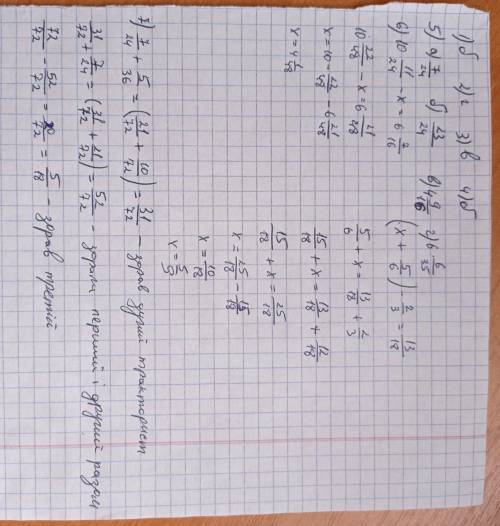 1) б 2) г 3) в 4) б
5) а) 7/24 б) 23/24 в) 4 9/16 г) 6 6/35
6) 10 11/24 - x = 6 7/16
10 22/48 - x = 6 21/48
x = 10 - 22/48 - 6 21/48
x = 4 1/48
(x + 5/6) - 2/3 = 13/18
5/6 + x = 13/18 + 2/3
15/18 + x = 13/18 + 12/18
15/18 + x = 25/18
x = 25/18 - 15/18
x = 10/18
x = 5/9
7) 7/24 + 5/36 = (21/72 + 10/72) = 31/72 - здрав другий тракторист
31/72 + 7/24 = (31/72 + 21/72) = 52/72 - здрали перший і другий разом
72/72 - 52/72 = 20/72 = 5/18 - здрав третій